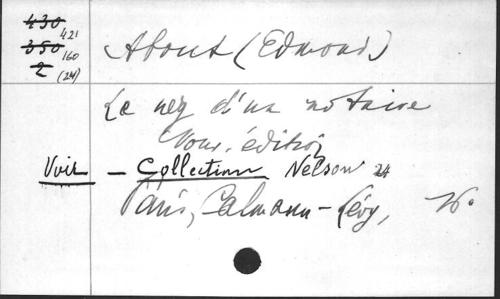 430 421
350 160
2 (24)
About (Edmond)
Le nez d'un notaire
Nouv. édition
Voir - Collection Nelson 24
Paris, Calmann-Lévy,